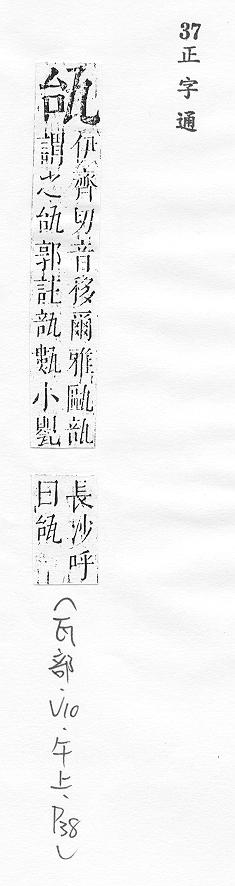 37
正字通
瓵
伊齊切音移爾雅甌瓿
謂之瓵郭註瓿甊小甖
長沙呼
曰瓵
(瓦部.V10.午上.P38)